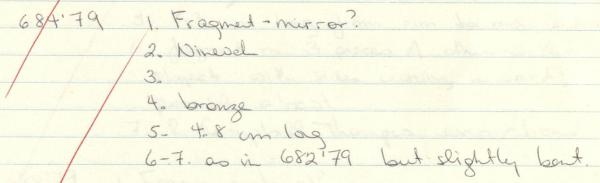 684'79 1. Fragment - mirror?
2. Nineveh
3.
4. bronze
5- 4.8 cm log
6-7. as in 682'79 but slightly bent.